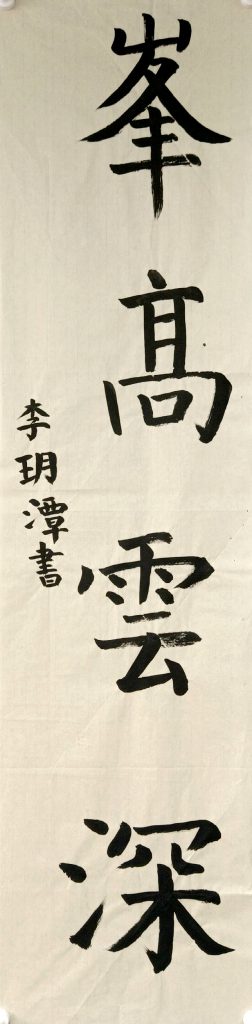 峯髙雲深
李玥潭書